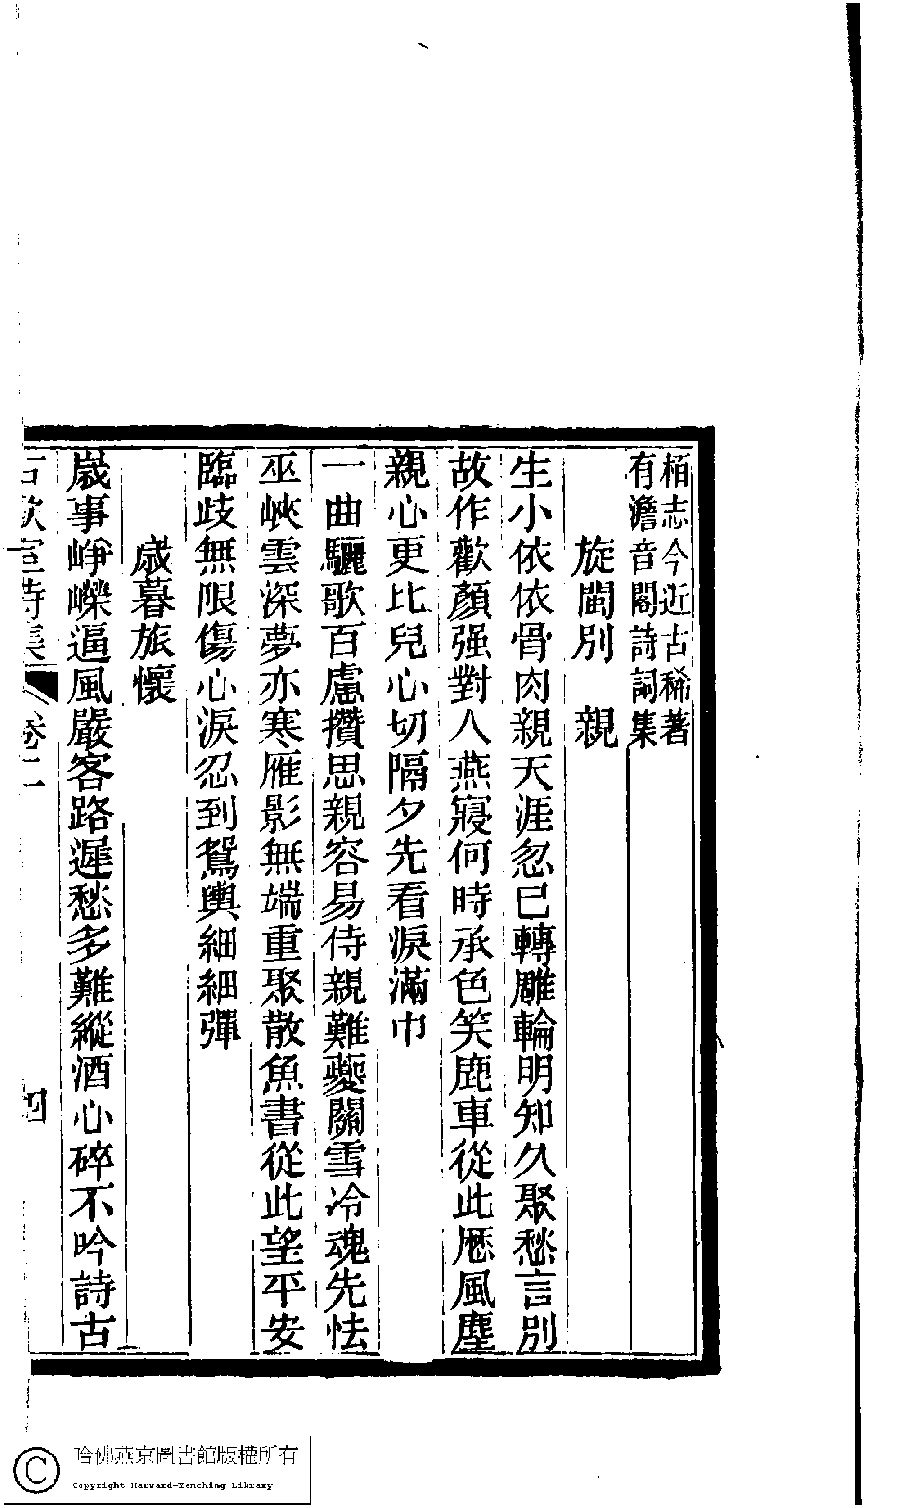 栢志今近古稀著
有澹音閣詩詞集
旋閩別　親
生小依依骨肉親天涯忽已轉雕輪明知久聚愁言別
故作歡顏强對人燕寢何時承色笑鹿車從此厯風塵
親心更比兒心切隔夕先看淚滿巾
一曲驪歌百慮攢思親容易侍親難夔關雪冷魂先怯
巫峽雲深夢亦寒雁影無端重聚散魚書從此望平安
臨歧無限傷心淚忍到鴛輿細細彈
歳暮旅懷
歳事崢嶸逼風嚴客路遲愁多難縱酒心碎不吟詩古
室詩集　卷二　四
哈佛燕京圖書館版權所有
Copyright Harvard-Yenching Library